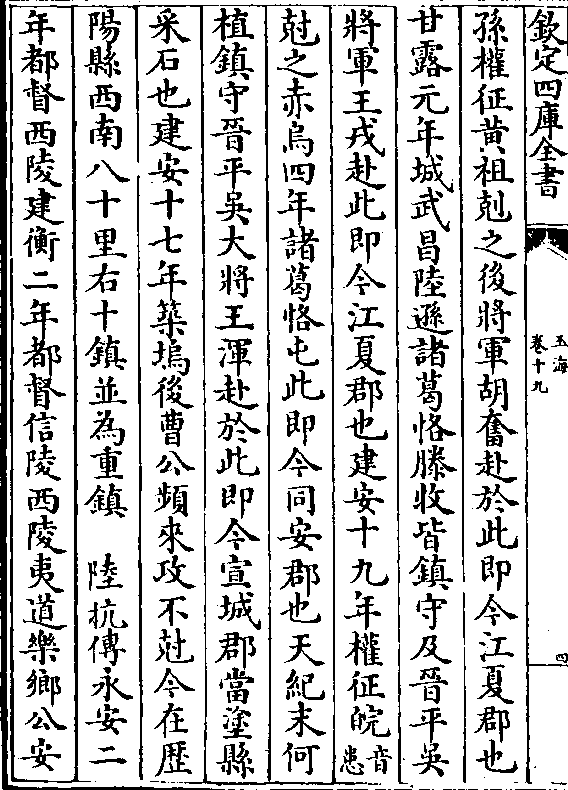 欽定四庫全書
玉海
卷十九
四
孫權征黃祖剋之後將軍胡奮赴於此即今江夏郡也
甘露元年城武昌陸遜諸葛恪滕收皆鎮守及晉平吳
將軍王戎赴此即今江夏郡也建安十九年權征皖音患
尅之赤烏四年諸葛恪屯此即今同安郡也天紀末何
植鎮守晉平吳大將王渾赴於此即今宣城郡當塗縣
采石也建安十七年築塢後曹公頻來攻不尅今在歴
陽縣西南八十里右十鎮並為重鎮　陸抗傳永安二
年都督西陵建衡二年都督信陵西陵夷道樂鄉公安